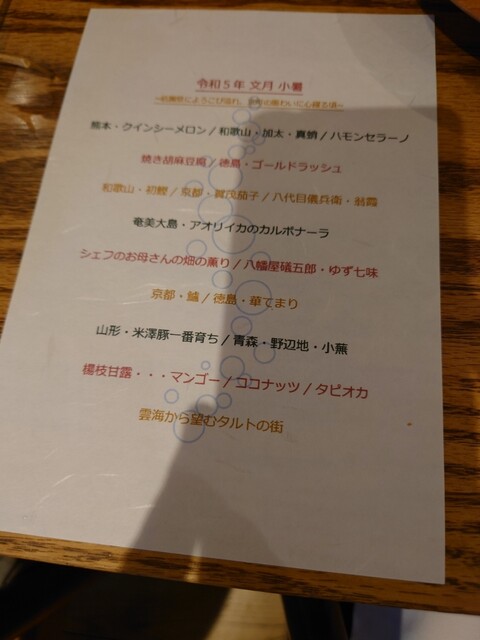 令和5年 文月 小暑
~祇園祭によろこび溢れ、の味わいに心躍る頃~
熊本・クインシーメロン / 和歌山・加太・真蛸 / ハモンセラーノ
焼き胡麻豆腐 / 徳島・ゴールドラッシュ
和歌山・初鰹 / 京都・賀茂茄子 / 八代目儀兵衛・翁霞
奄美大島・アオリイカのカルボナーラ
シェフのお母さんの畑の薫り / 八幡屋礒五郎・ゆず七味
京都・鱸 / 徳島・華てまり
山形・米澤豚一番育ち / 青森・野辺地・小蕪
楊枝甘露・・・マンゴー / ココナッツ / タピオカ
雲海から望むタルトの街